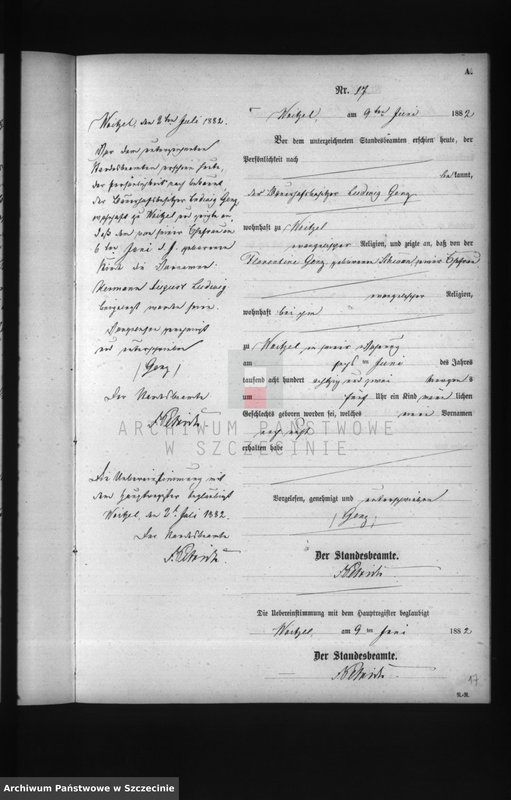 A.
Nr. 17
Weitzel, am 9ten Juni 1882
Vor dem unterzeichneten Standesbeamten erschien heute, der
Persönlichkeit nach
bekannt,
der Bauernhofsbesitzer Ludwig Genz
wohnhaft zu Weitzel
evangelischer Religion, und zeigte an, daß von der
Florentine Genz geborenen seiner Ehefrau
evangelischer Religion,
wohnhaft bei ihm
zu Weitzel in seiner Wohnung
am sechsten Juni des Jahres
tausend acht hundert achtzig und zwei Morgens
um fünf Uhr ein Kind männlichen
Geschlechts geboren worden sei, welches einen Vornamen
noch nicht
erhalten habe
Vorgelesen, genehmigt und unterschrieben
(Genz)
Der Standesbeamte.
Die Uebereinstimmung mit dem Hauptregister beglaubigt
Weitzel, am 9ten Juni 1882
Der Standesbeamte.
17
N.-R.
Weitzel, den 2ten Juli 1882.
Vor dem unterzeichneten
Standesbeamten erschien heute,
der Persönlichkeit nach bekannt,
der Bauernhofsbesitzer Ludwig Genz
wohnhaft zu Weitzel und zeigte an,
daß dem von seiner Ehefrau am
6ten Juni d. J. geborenen
Kinde die Vornamen
Hermann August Ludwig
beigelegt worden seien.
Vorgelesen genehmigt
und unterschrieben
(Genz)
Der Standesbeamte
Die Uebereinstimmung mit
dem Hauptregister beglaubigt
Weitzel, den 2t. Juli 1882.
Der Standesbeamte
ARCHIWUM PAŃSTWOWE
W SZCZECINIE
Archiwum Państwowe w Szczecinie